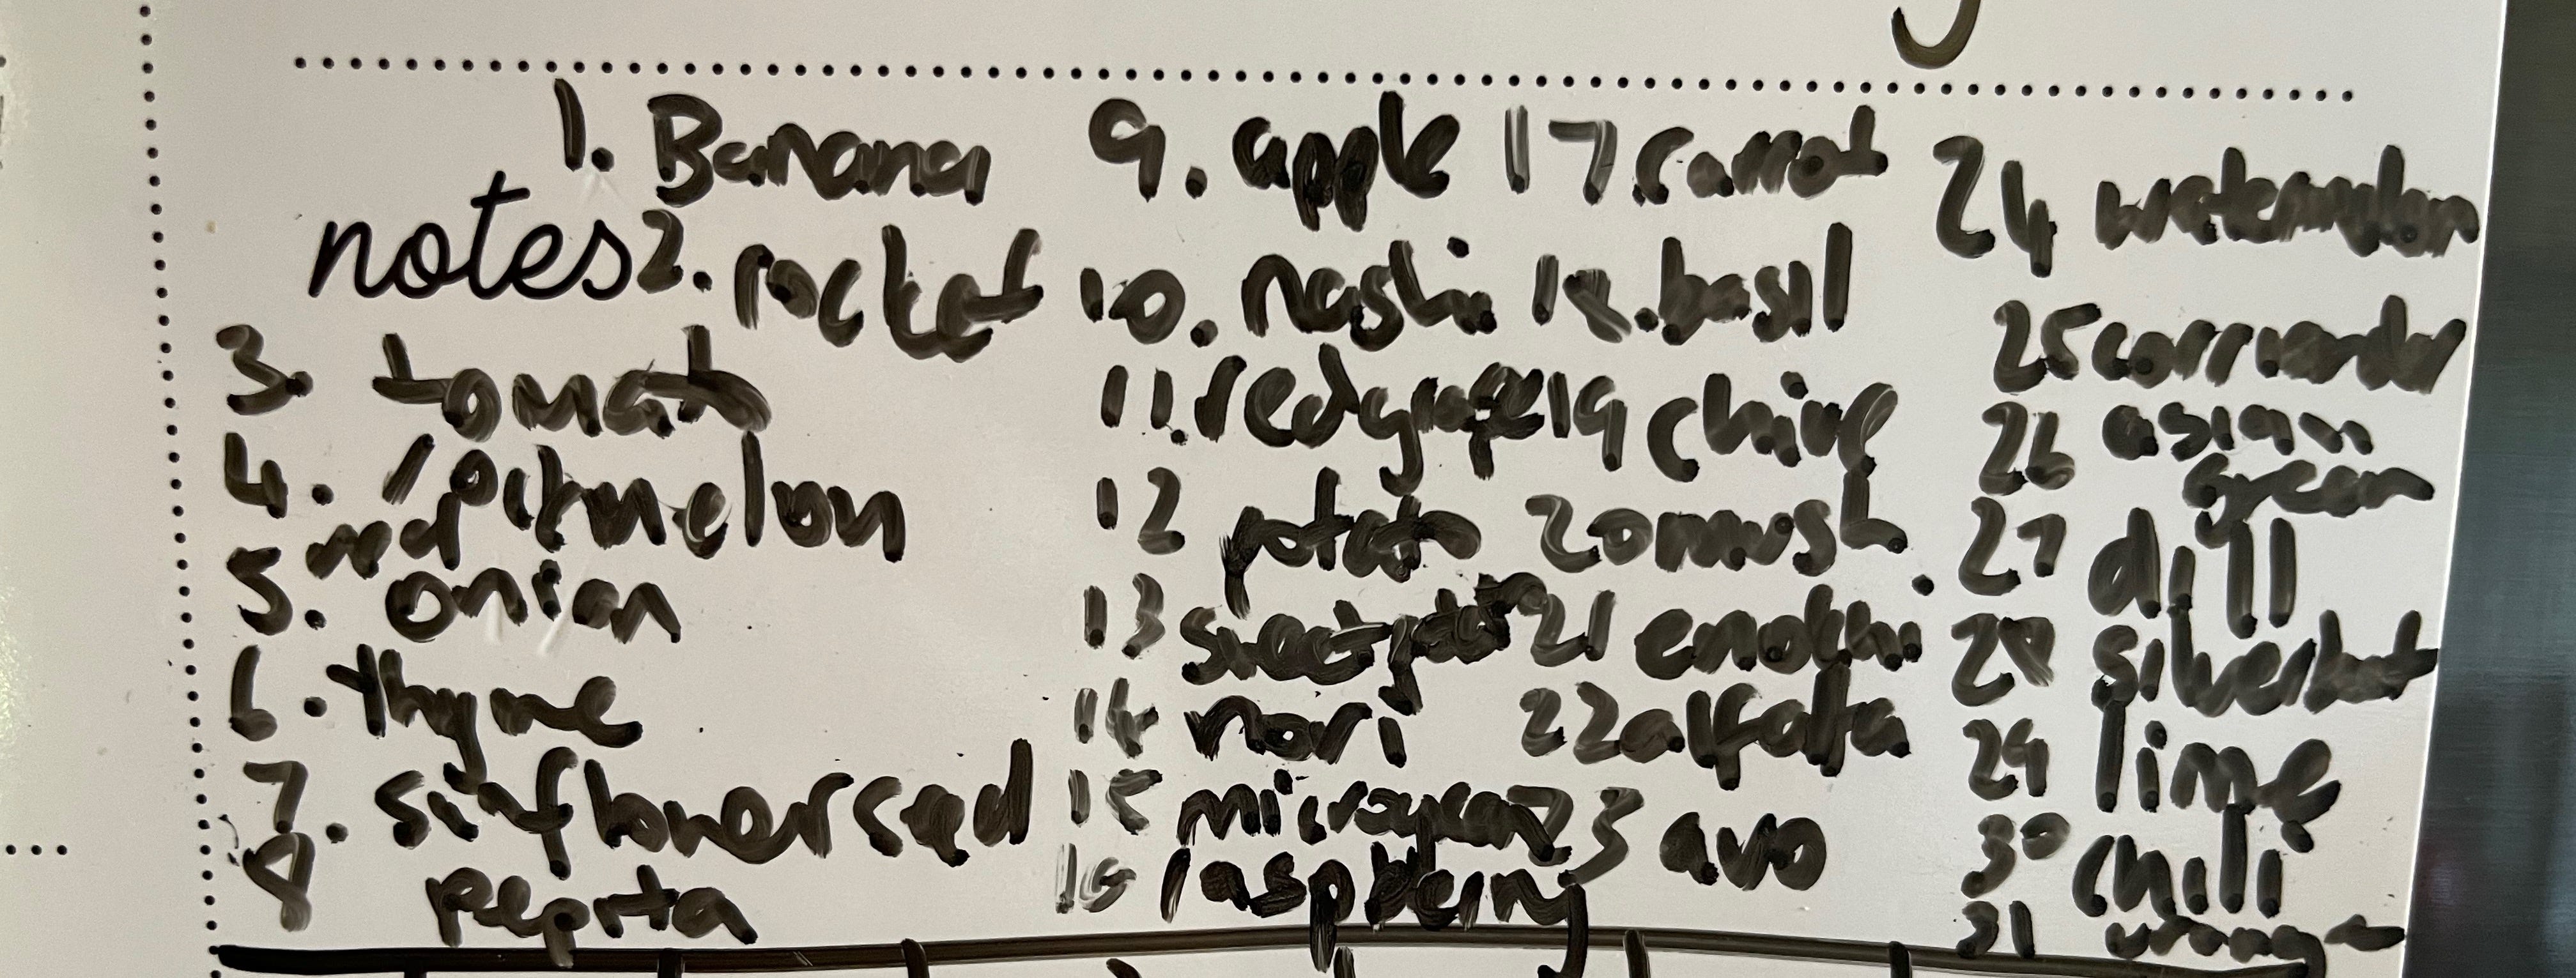 1. Banana
notes
2. rocket
3. tomato
4. rockmelon
5. red onion
6. thyme
7. sunflowersed
8 pepita
9. apple
10. nashi
11. redgrape
12 potato
13 sweet potato
14 nori
15 microgreen
16 raspberry
17. carrot
18. basil
19 chive
20 mush
21 enoki
22 alfalfa
23 avo
24 watermelon
25 corriander
26 asian
green
27 dill
28 silverbeet
29 lime
30 chilli
31 orange